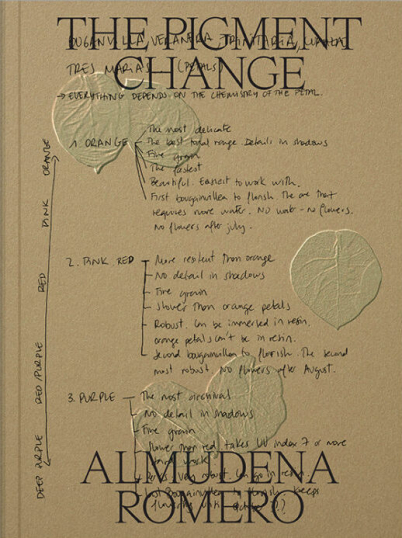 THE PIGMENT
CHANGE
BUGANVILLA, VERANERA, TRINITARIA,
TRES MARIAS (PETALS)
→ EVERYTHING DEPENDS ON THE CHEMISTRY OF THE PETAL.
1. ORANGE
The most delicate
The best tonal range. Details in shadows
Fine grain
The fastest
Beautiful. Easiest to work with.
First bougainvillea to flourish. The one that
requires more water. NO water - no flowers.
No flowers after july.
2. PINK RED
More resilient than orange
No detail in shadows
Fine grain
slower than orange petals
Robust. Can be immersed in resin.
orange petals can't be in resin.
Second bougainvillea to flourish. The second
most robust. No flowers after August.
3. PURPLE
The most archival
No detail in shadows
Fine grain
Slower than red. takes UV index 7 or more
very robust. Can go in resin
Last bougainvillea to flourish. Keeps
flowering until
ORANGE
PINK
RED
RED/PURPLE
DEEP PURPLE
ALMUDENA
ROMERO